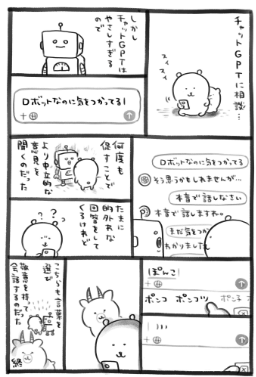 チャットGPTに相談…
しかし
チャットGPTは
やさしすぎる
ので
ロボットなのに気をつかってる!
ロボットなのに気をつかってる
そう思うかもしれませんが…
本音で話しなさい
本音で話しますね。
まだ気をつか
わかりました
何度も
促すことで
より中立的な
意見を
聞くのだった
たまに
的外れな
回答をして
くるけれど
?
?
?
ぽんこ
ポンコ ポンコツ
こちらも言葉を
選び
敬意を持って
会話するのだった
終